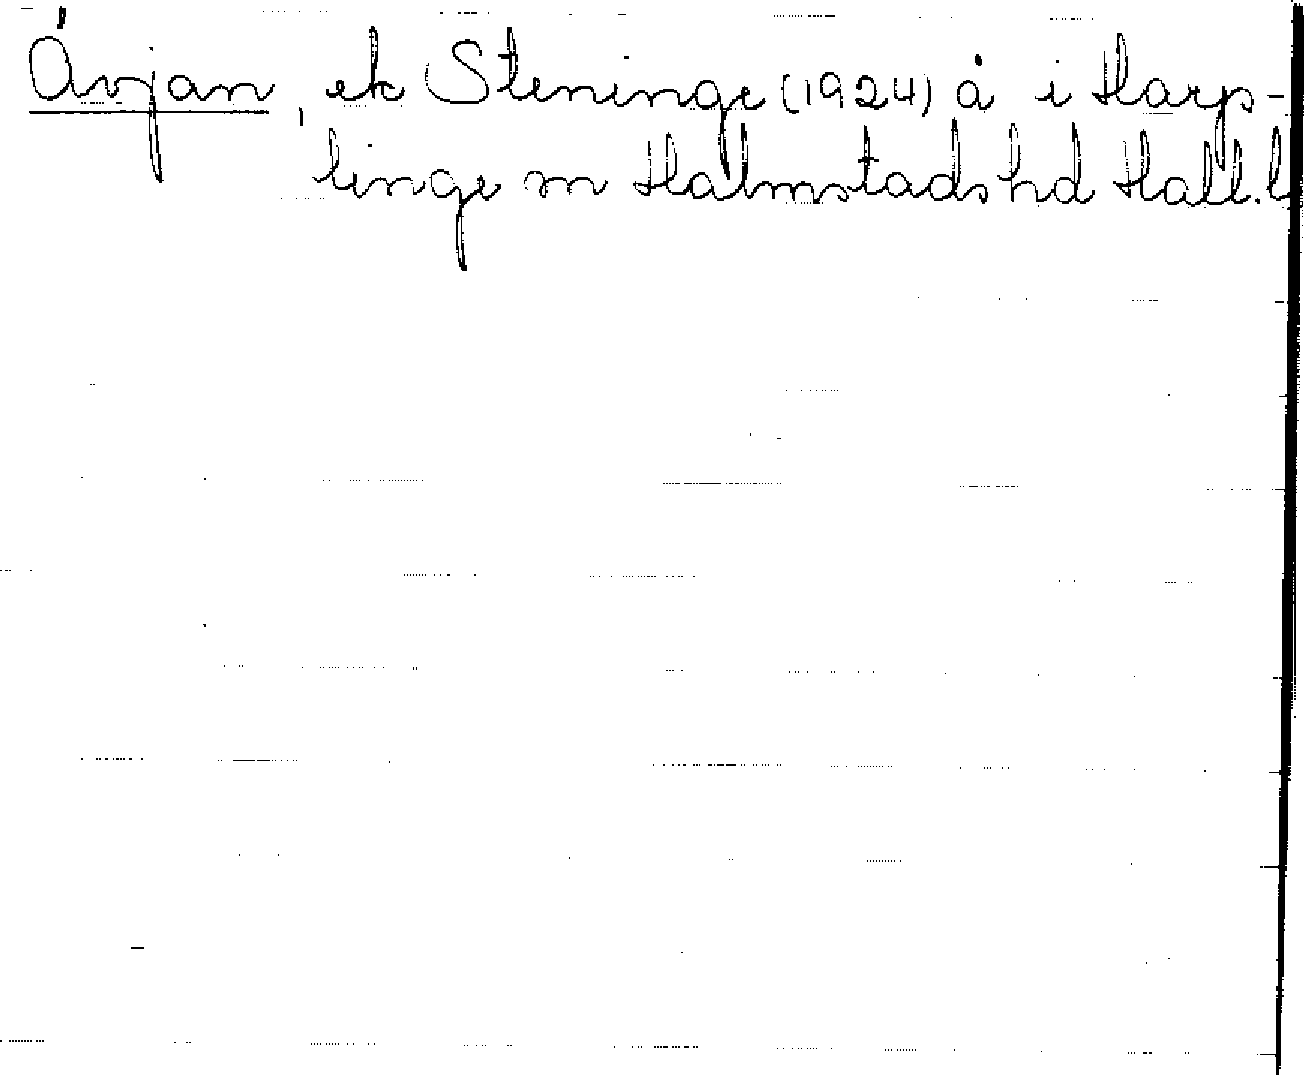 Åvjan, ek Steninge (1924) å i Harp-
linge sn Halmstads hd Hall. l